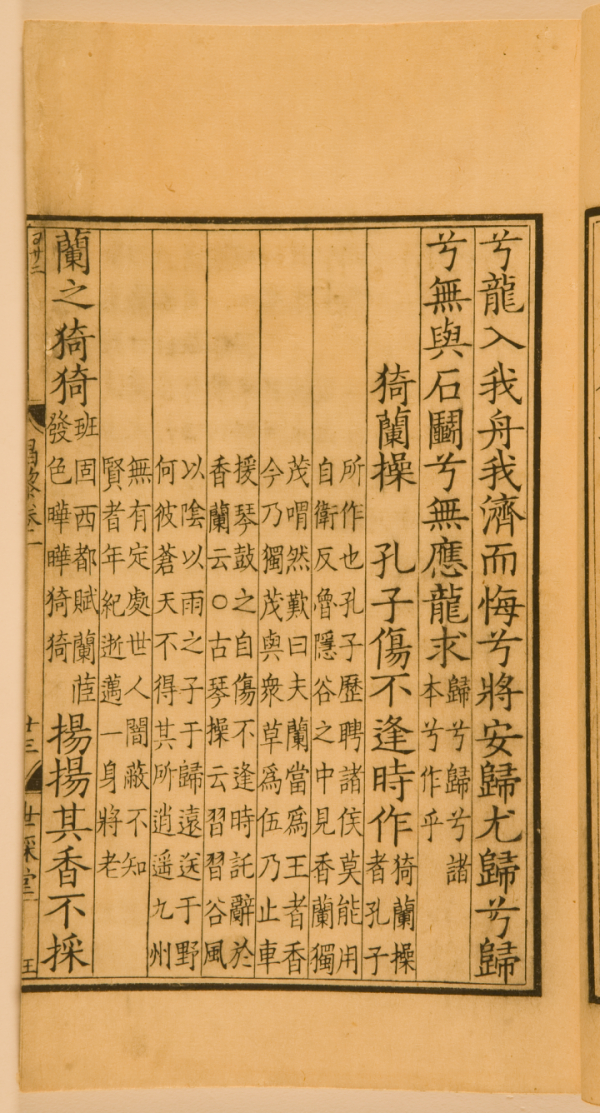 兮龍入我舟我濟而悔兮將安歸尤歸兮歸
兮無與石鬭兮無應龍求歸兮歸兮諸
本兮作乎
猗蘭操 孔子傷不逢時作猗蘭操
者孔子
所作也孔子歷聘諸侯莫能用
自衛反魯隱谷之中見香蘭獨
茂喟然歎曰夫蘭當爲王者香
今乃獨茂與衆草爲伍乃止車
援琴鼓之自傷不逢時託辭於
香蘭云○古琴操云習習谷風
以陰以雨之子于歸遠送于野
何彼蒼天不得其所逍遥九州
無有定處世人闇蔽不知
賢者年紀逝邁一身將老
蘭之猗猗班固西都賦蘭茝
發色曄曄猗猗揚揚其香不採
昌黎卷一 廿三 世綵堂 王